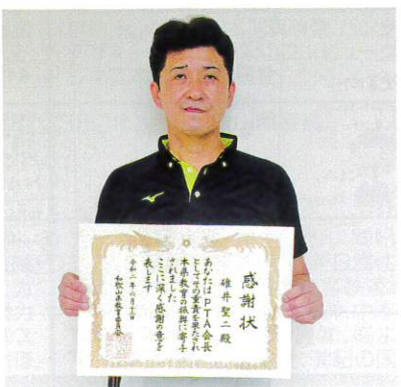 感謝状
碓井聖二殿
あなたはPTA会長
としてその重責を果たされ
本県教育の振興に寄与
されました
ここに深く感謝の意を
表します
令和二年
和歌山県教育委員会